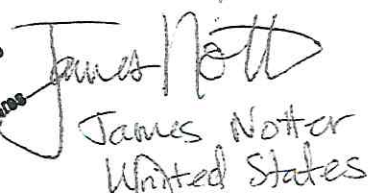 James Nott
James Notter
United States